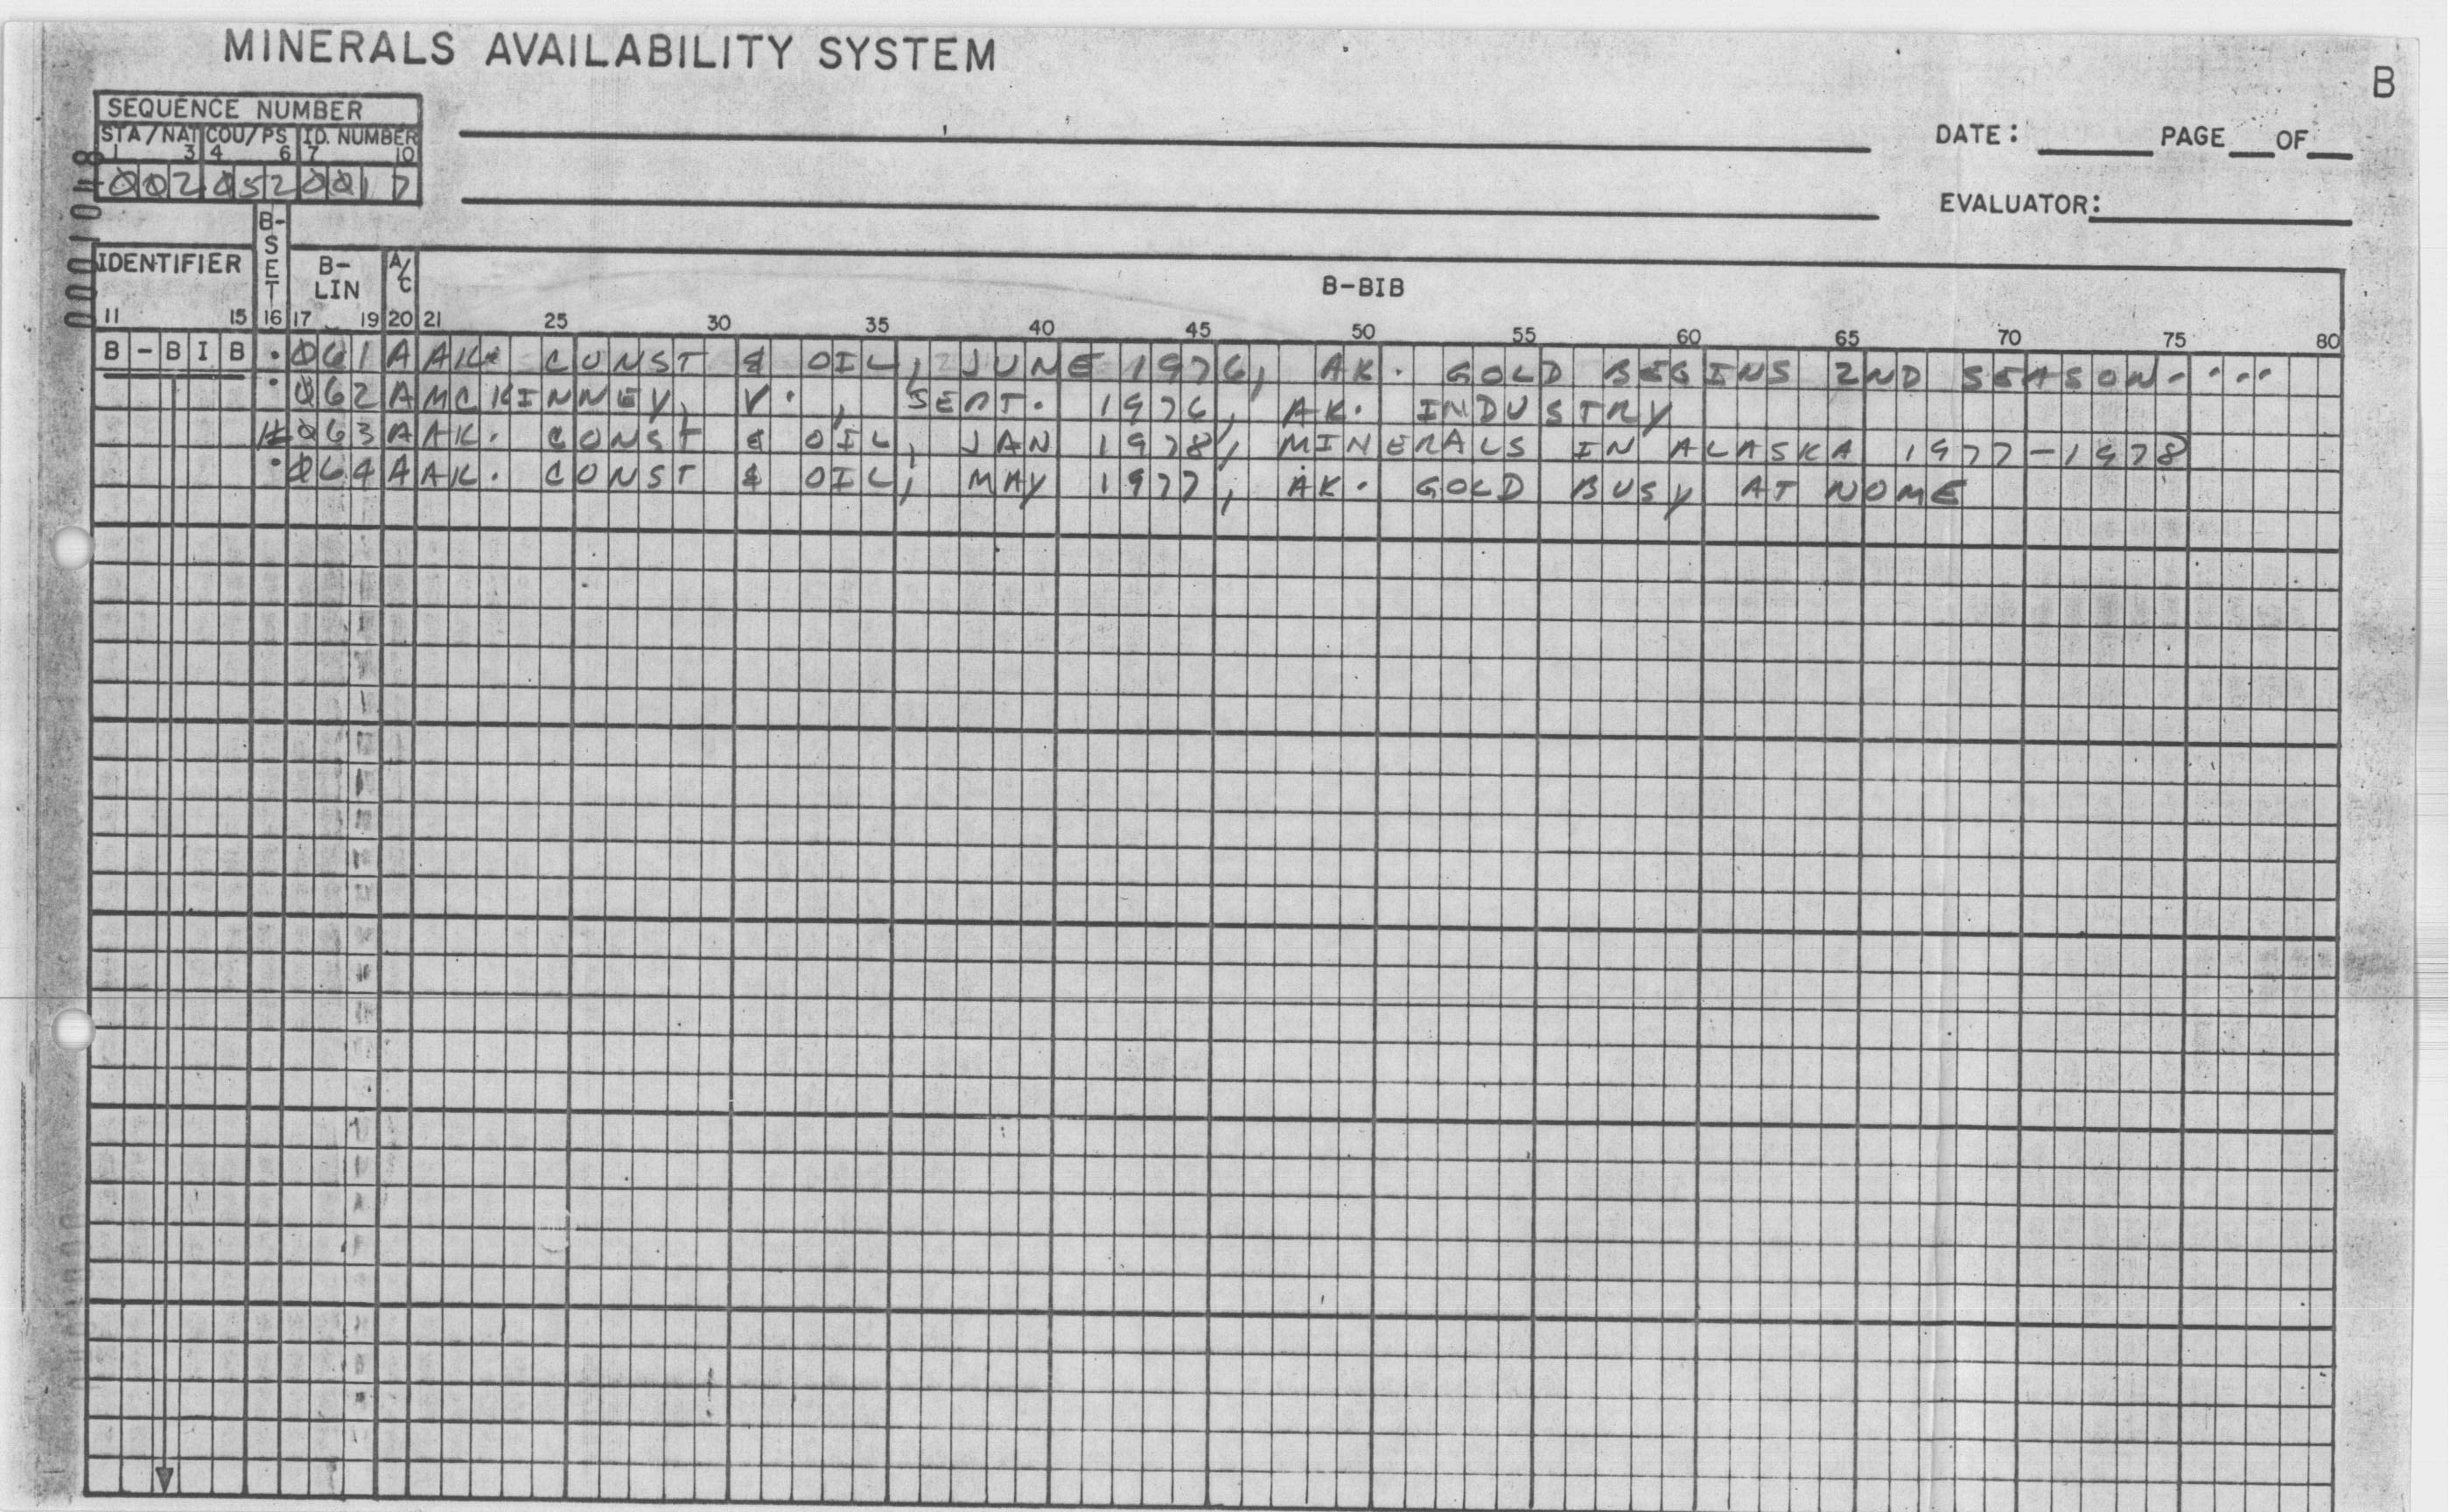 MINERALS AVAILABILITY SYSTEM
B
SEQUENCE NUMBER
STA/NAT COU/PS I.D. NUMBER
1 3 4 6 7 10
002 052 0017
DATE: PAGE OF
EVALUATOR:
00010118
IDENTIFIER B-SET B-LIN A/C B-BIB
11 15 16 17 19 20 21 25 30 35 40 45 50 55 60 65 70 75 80
B-BIB 061 A AK. CONST & OIL, JUNE 1976, AK. GOLD BEGINS 2ND SEASON....
062 A MCKINNEY, V., SEPT. 1976, AK. INDUSTRY
063 A AK. CONST & OIL, JAN 1978, MINERALS IN ALASKA 1977-1978
064 A AK. CONST & OIL, MAY 1977, AK. GOLD BUSY AT NOME